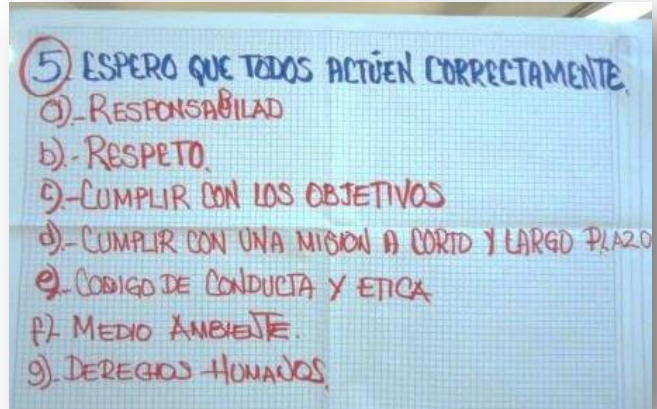 5) ESPERO QUE TODOS ACTÚEN CORRECTAMENTE.
a).-RESPONSABILAD
b).-RESPETO.
c).-CUMPLIR CON LOS OBJETIVOS
d).-CUMPLIR CON UNA MISION A CORTO Y LARGO PLAZO
e).-CODIGO DE CONDUCTA Y ETICA
f).- MEDIO AMBIENTE.
g).-DERECHOS HUMANOS.